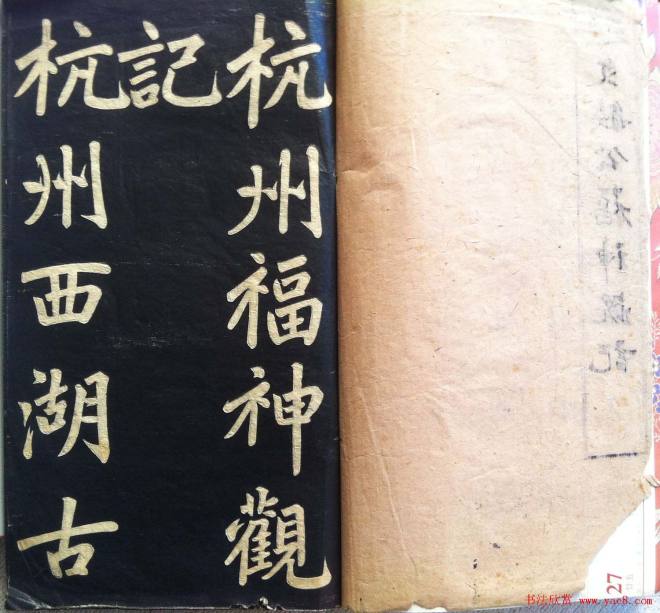 杭州福神觀
記
杭州西湖古
27
书法欣赏 www.yac8.com